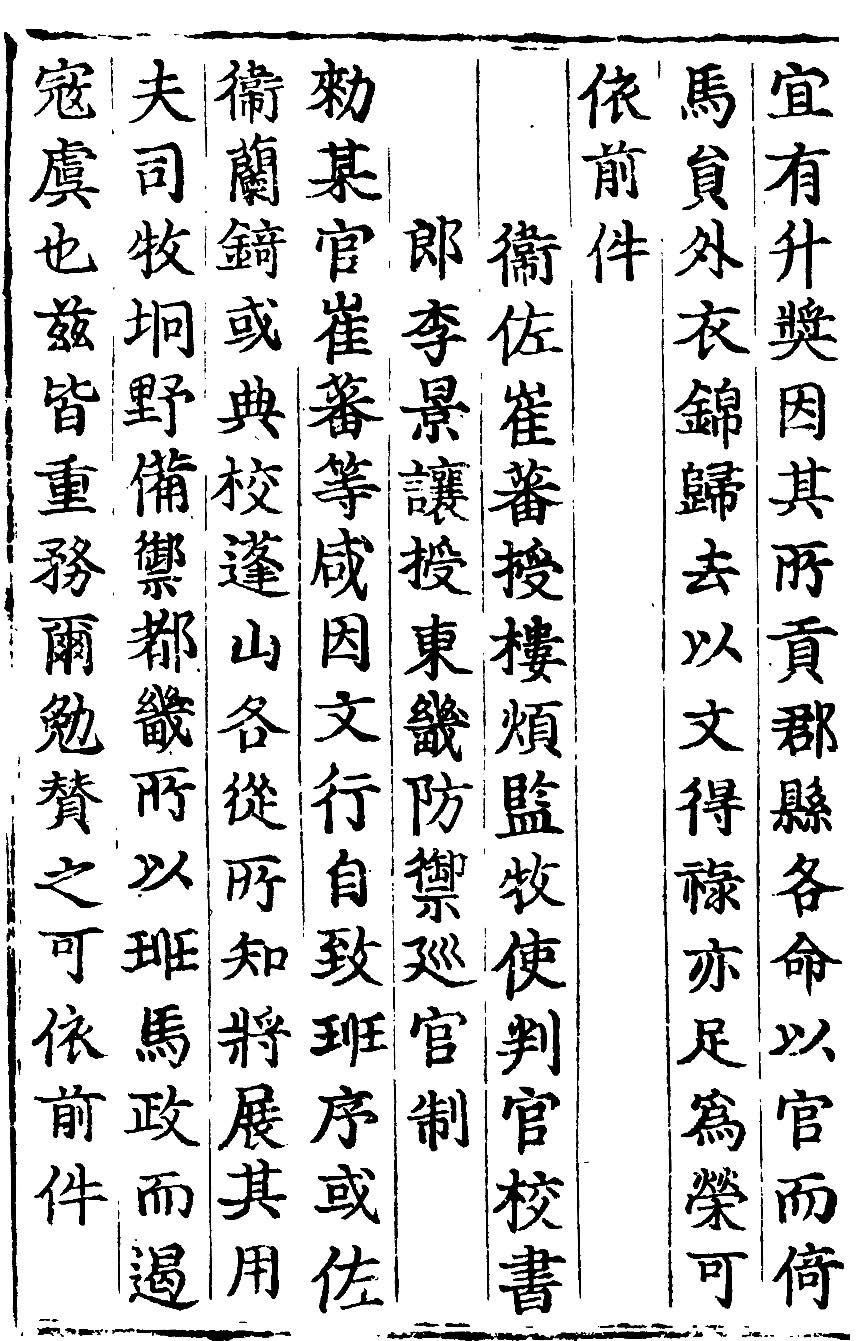 宜有升奬因其所貢郡縣各命以官而倚
馬貟外衣錦歸去以文得祿亦足爲榮可
依前件
衞佐崔蕃授樓煩監牧使判官校書
郎李景讓授東畿防禦廵官制
勑某官崔蕃等咸因文行自致班序或佐
衞蘭錡或典校蓬山各從所知將展其用
夫司牧坰野備禦都畿所以班馬政而遏
寇虞也兹皆重務爾勉贊之可依前件